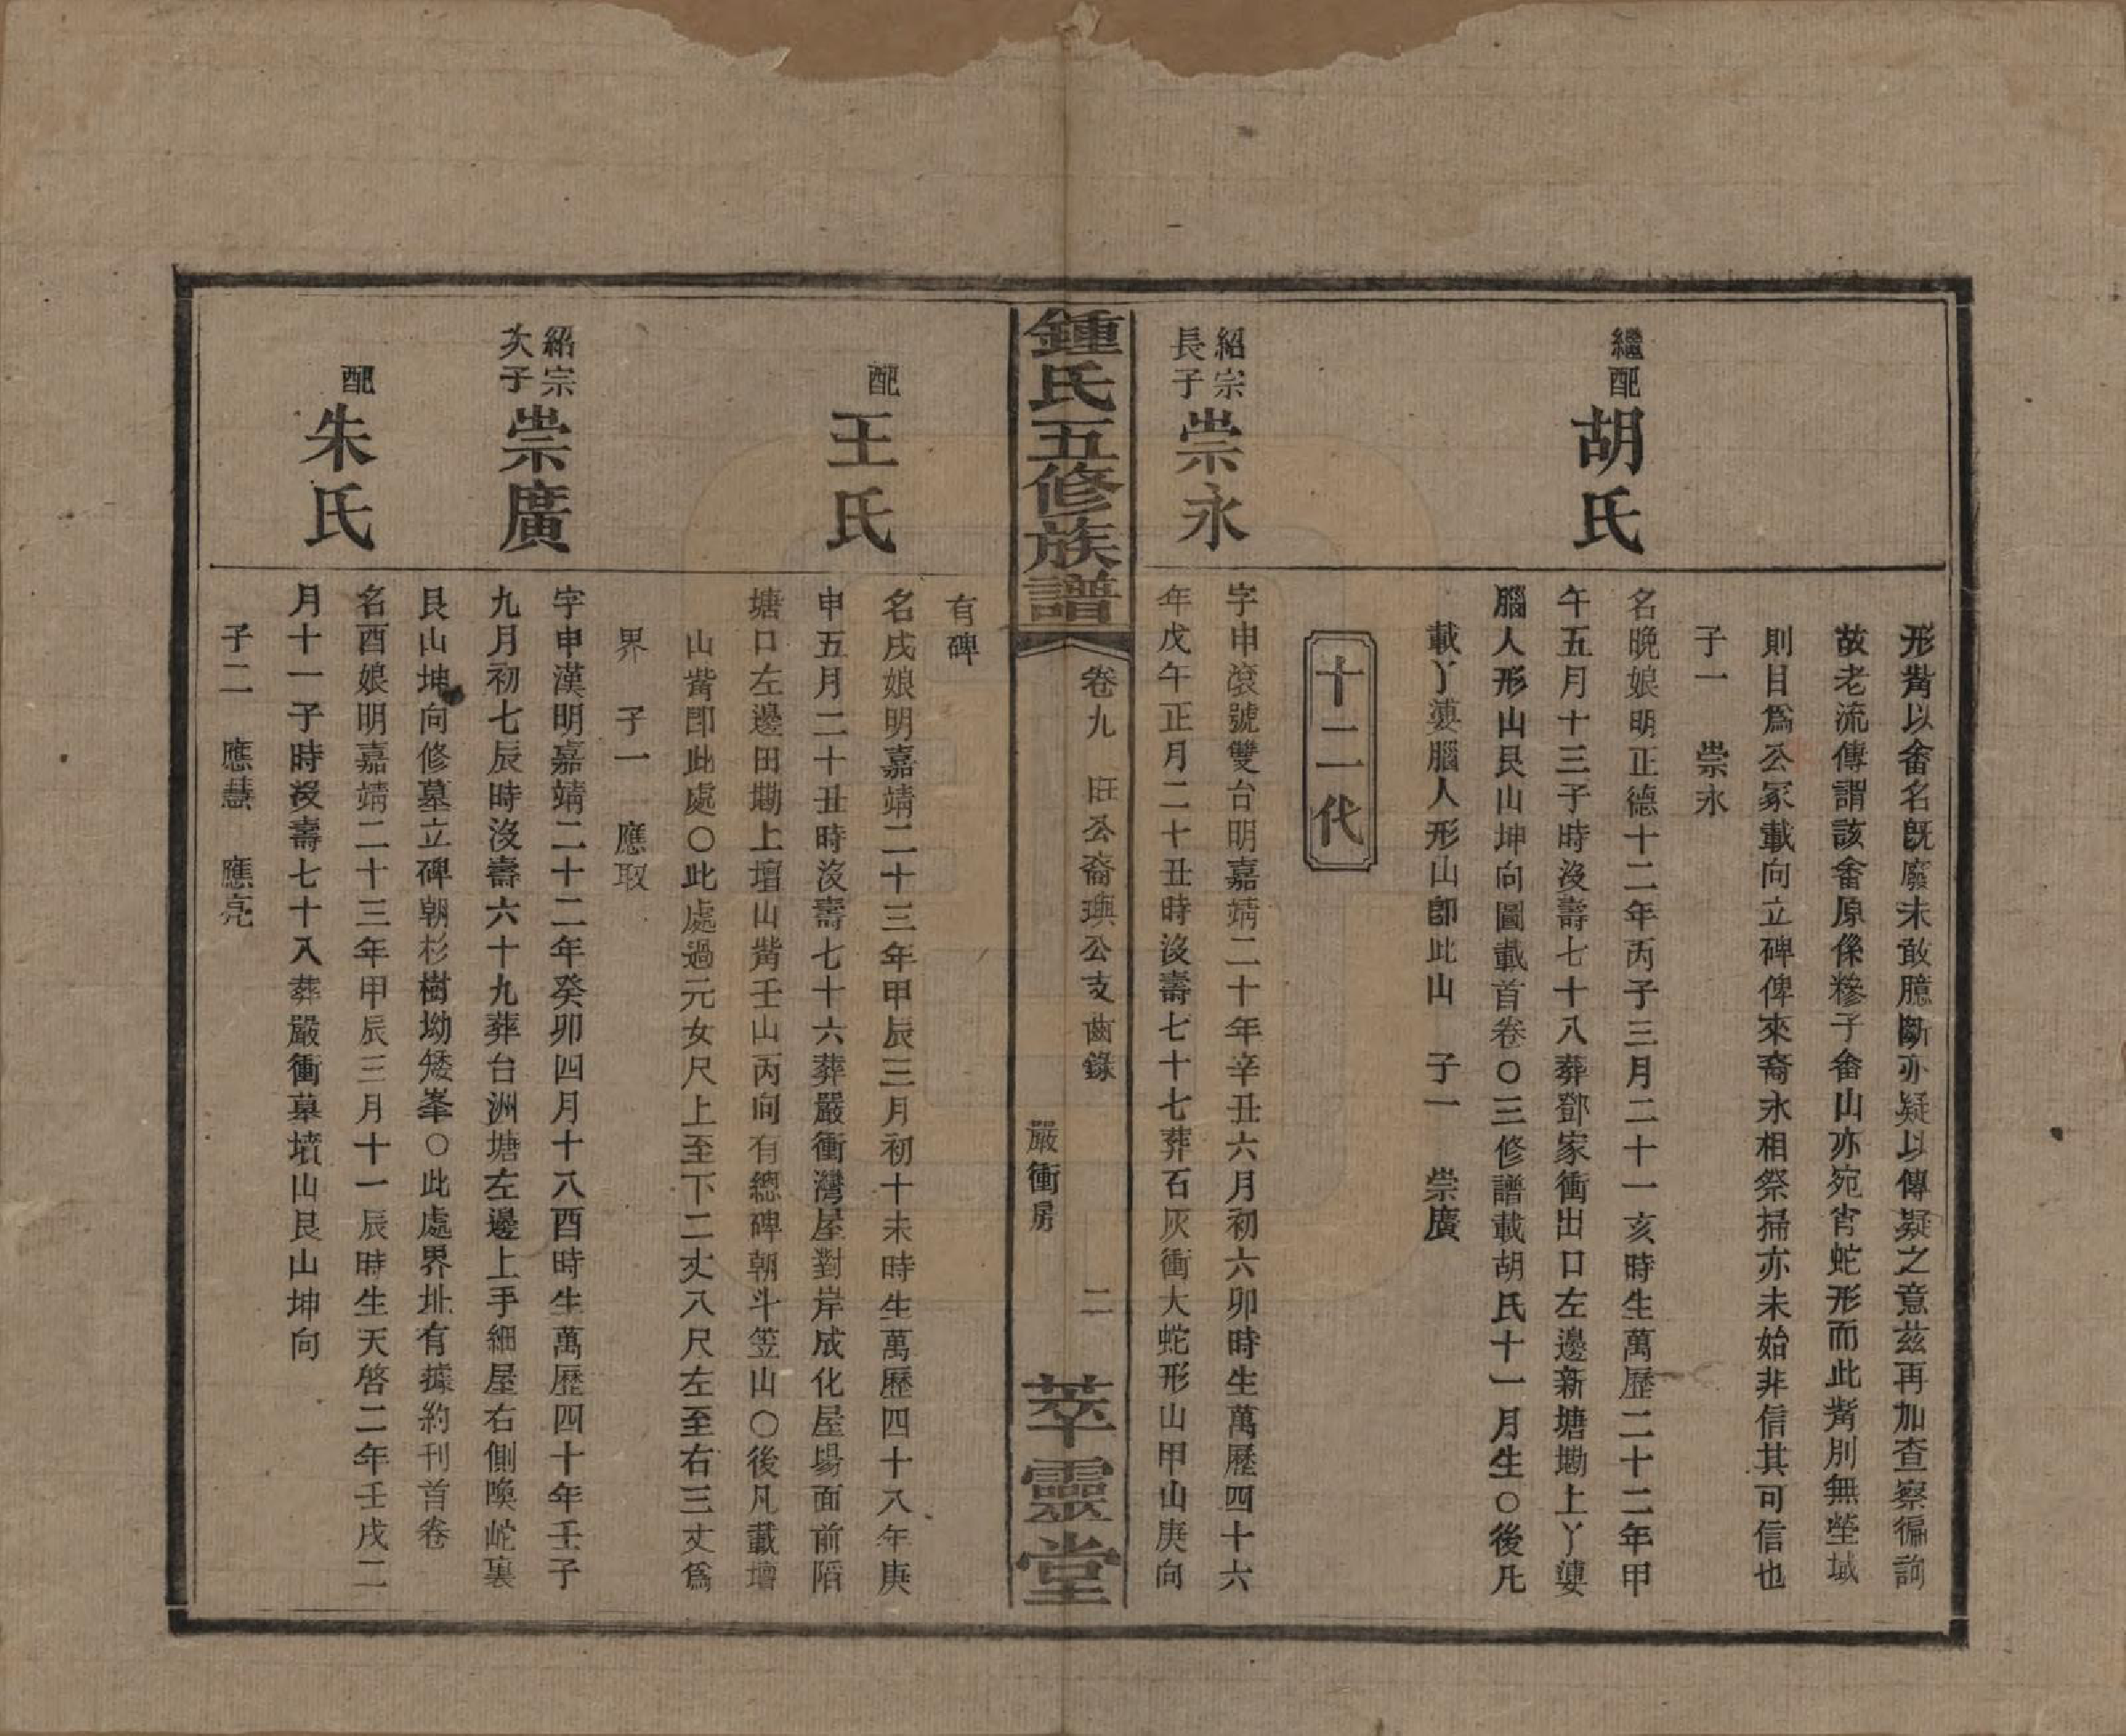 形嘴以畬名旣廢未敢臆斷亦疑以傳疑之意茲再加查察徧詢
故老流傳謂該畬原係糝子畬山亦宛肖蛇形而此嘴別無塋域
則目爲公冢載向立碑俾來裔永相祭掃亦未始非信其可信也
子一 崇永
繼配胡氏
名晚娘明正德十二年丙子三月二十一亥時生萬歷二十二年甲
午五月十三子時沒壽七十八葬鄧家衝出口左邊新塘墈上丫婆
腦人形山艮山坤向圖載首卷〇三修譜載胡氏十一月生〇後凡
載丫婆腦人形山卽此山 子一 崇廣
十二代
紹宗長子崇永
字申滾號雙台明嘉靖二十年辛丑六月初六卯時生萬歷四十六
年戊午正月二十丑時沒壽七十七葬石灰衝大蛇形山甲山庚向
鍾氏五修族譜
卷九 旺公裔璵公支齒錄
嚴衝房
二
萃靈堂
有碑
配王氏
名戌娘明嘉靖二十三年甲辰三月初十未時生萬歷四十八年庚
申五月二十丑時沒壽七十六葬嚴衝灣屋對岸成化屋場面前䧟
塘口左邊田墈上壇山嘴壬山丙向有總碑朝斗笠山〇後凡載壇
山嘴卽此處〇此處過元女尺上至下二丈八尺左至右三丈爲
界 子一 應取
紹宗次子崇廣
字申漢明嘉靖二十二年癸卯四月十八酉時生萬歷四十年壬子
九月初七辰時沒壽六十九葬台洲塘左邊上手細屋右側喚䖳裏
艮山坤向修墓立碑朝杉樹坳矮峯〇此處界址有據約刊首卷
配朱氏
名酉娘明嘉靖二十三年甲辰三月十一辰時生天啓二年壬戌二
月十一子時沒壽七十八葬嚴衝墓墳山艮山坤向
子二 應慧 應亮